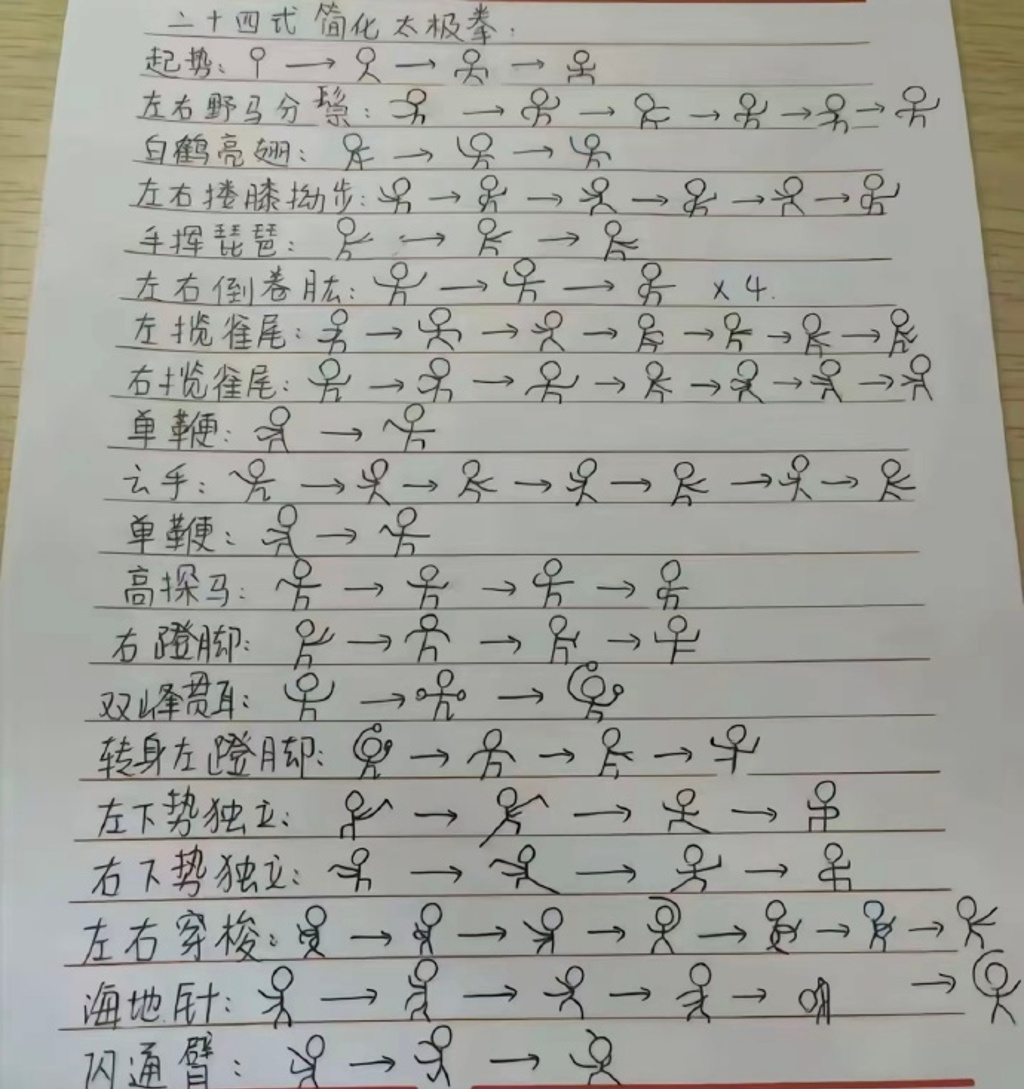 二十四式 简化太极拳:
起势:
左右野马分鬃:
白鹤亮翅:
左右搂膝拗步:
手挥琵琶:
左右倒卷肱: ×4.
左揽雀尾:
右揽雀尾:
单鞭:
云手:
单鞭:
高探马:
右蹬脚:
双峰贯耳:
转身左蹬脚:
左下势独立:
右下势独立:
左右穿梭:
海地针:
闪通臂: